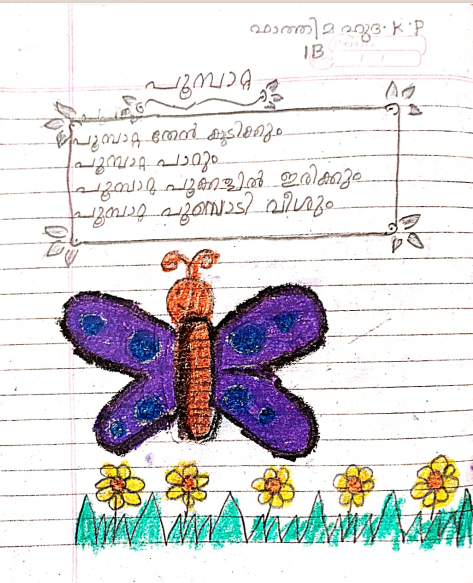 ഫാത്തിമ ഹുദ. K. P
1B
പൂമ്പാറ്റ
പൂമ്പാറ്റ തേൻ കുടിക്കും
പൂമ്പാറ്റ പാറും
പൂമ്പാറ്റ പൂക്കളിൽ ഇരിക്കും
പൂമ്പാറ്റ പൂമ്പൊടി വീശും